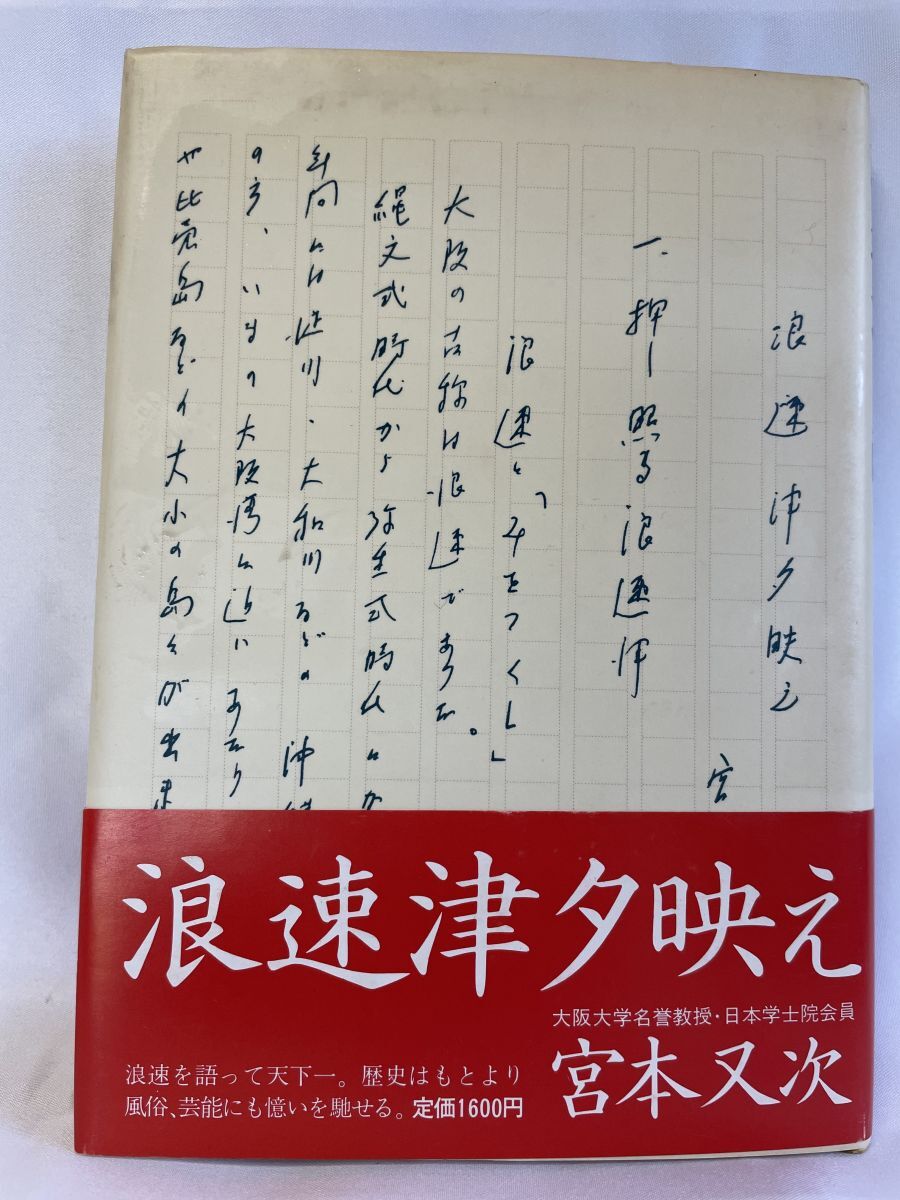 浪速津夕映え
宮
一、押し照る浪速津
浪速と「みをつくし」
大阪の古称は浪速である。
縄文式時代から弥生式時代にか
年間には淀川、大和川などの沖積
の方、いまの大阪湾に近いあたり
や比売島などの大小の島々が出来
浪速津夕映え
大阪大学名誉教授・日本学士院会員
宮本又次
浪速を語って天下一。歴史はもとより
風俗、芸能にも憶いを馳せる。定価1600円